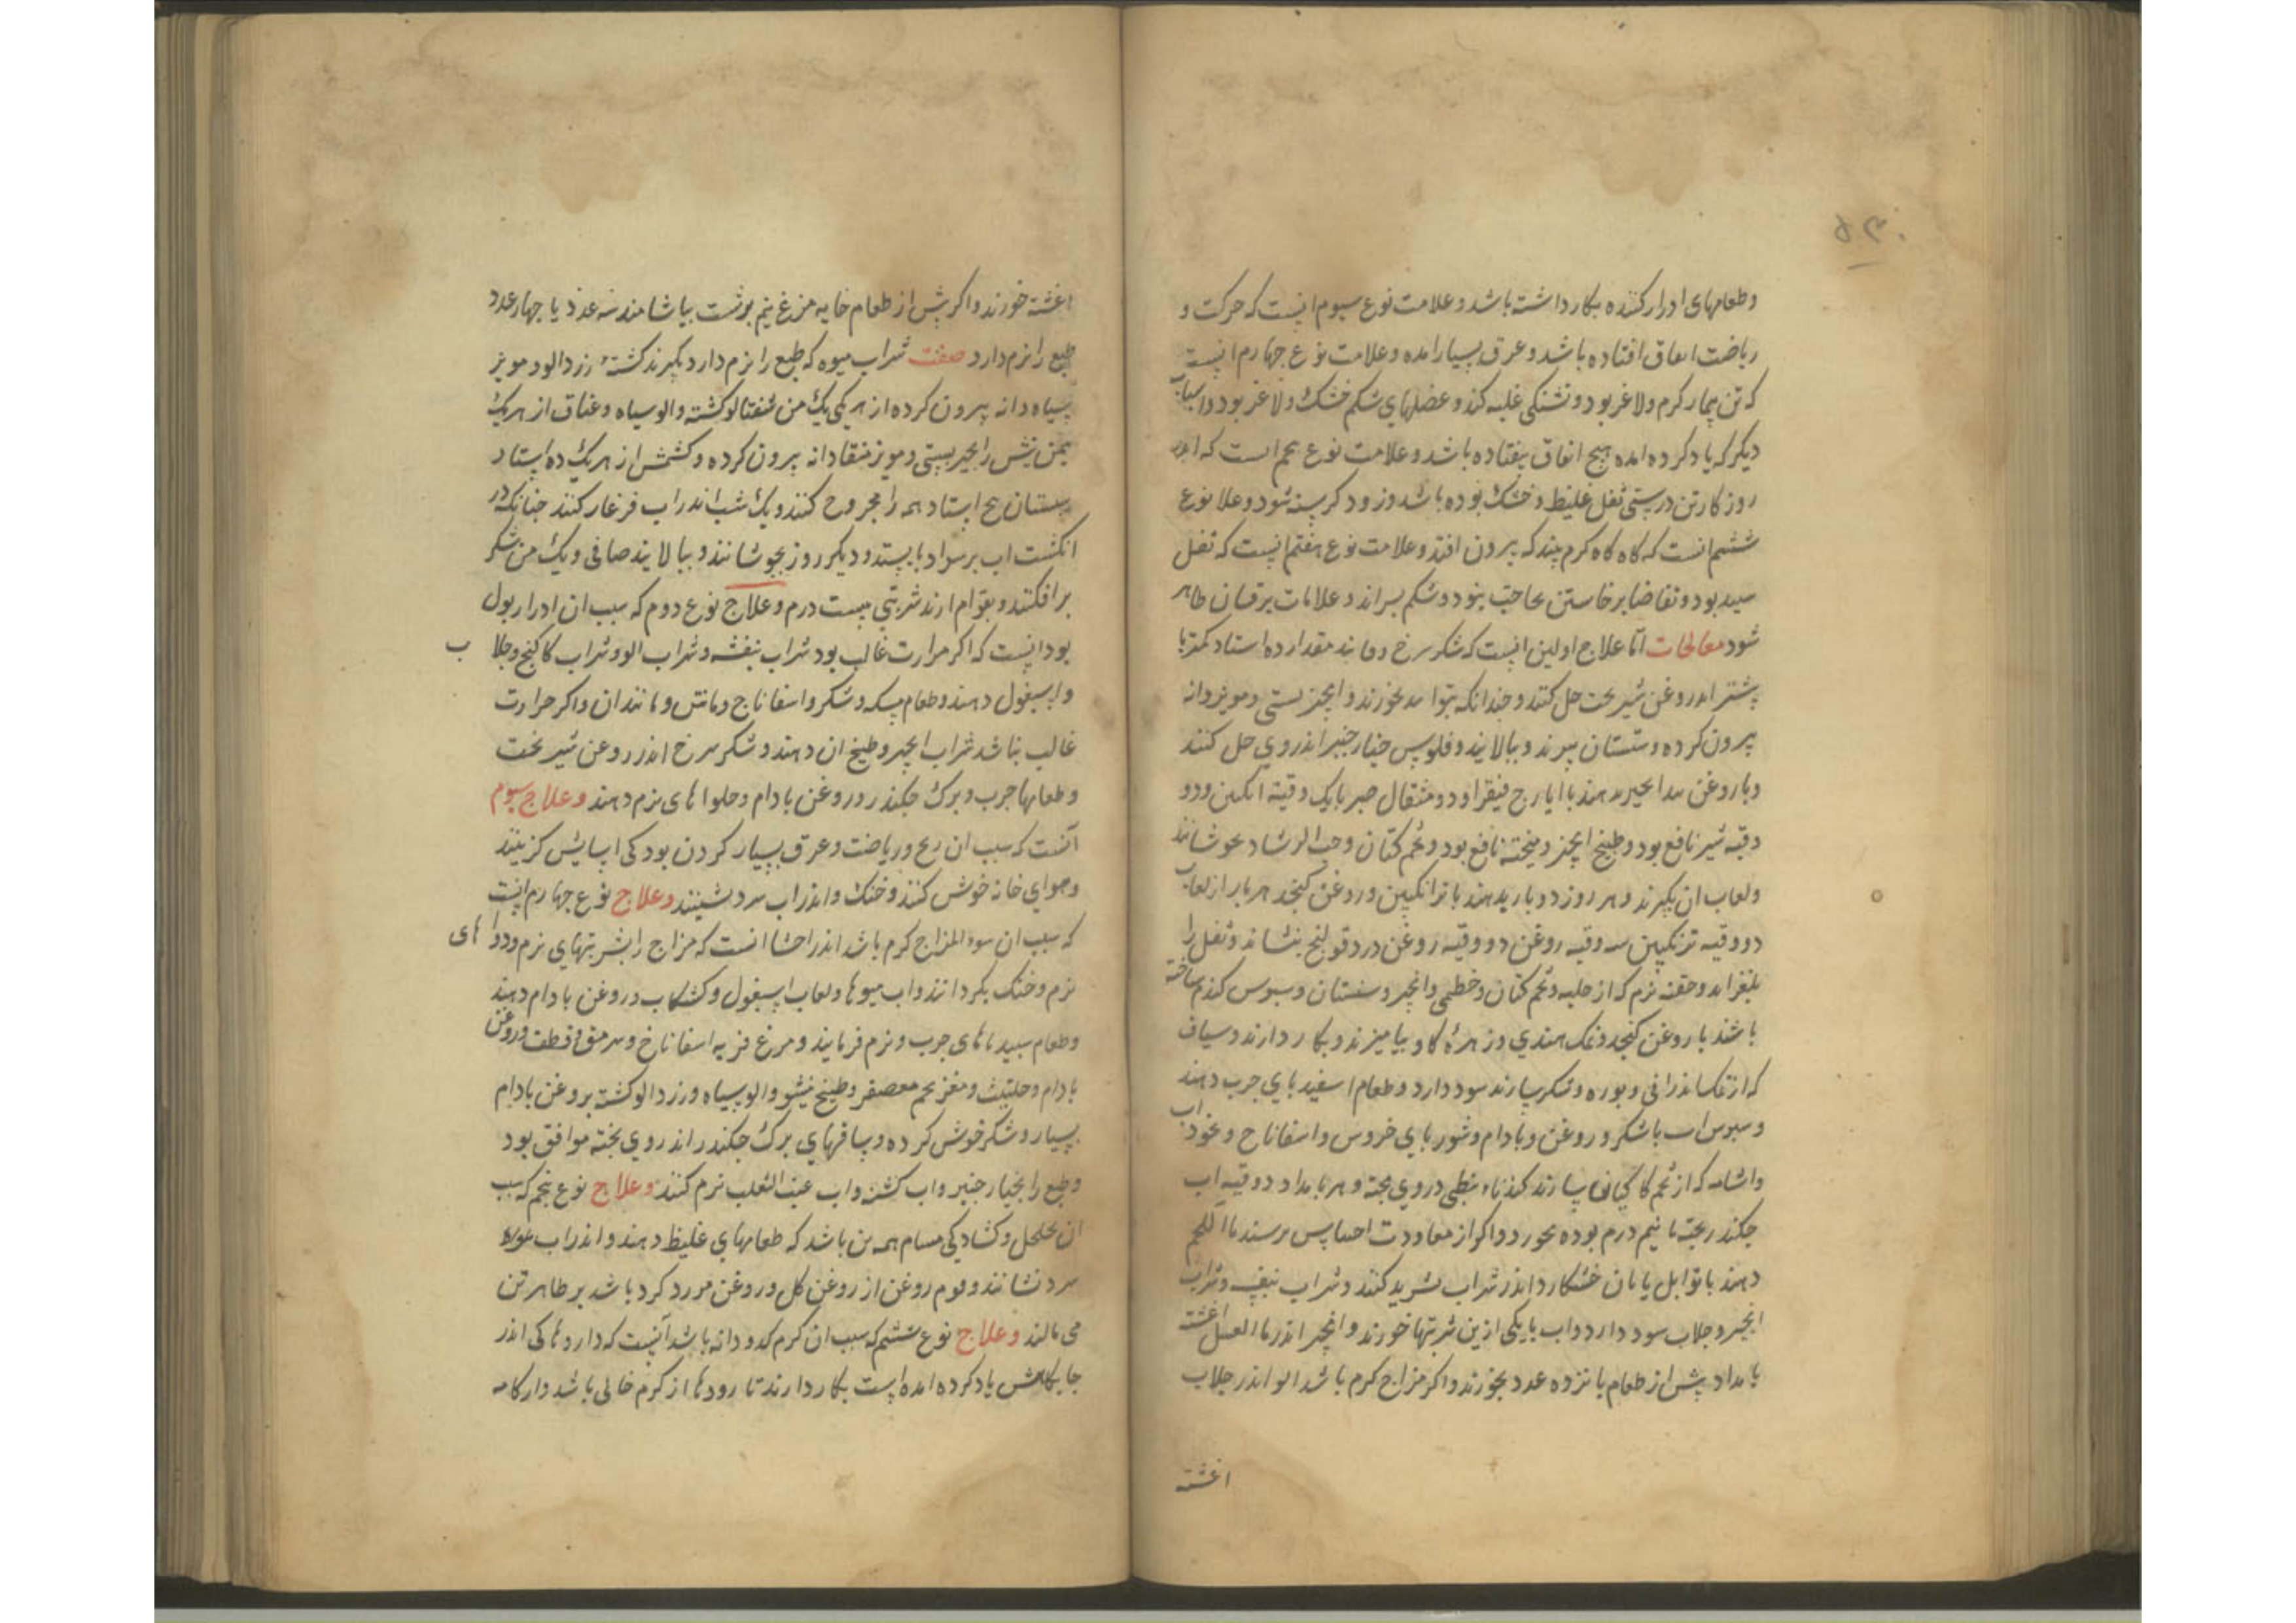 وطعامهای ادرار کننده بکار داشته باشد و علامت نوع سیوم انیست که حرکت و
ریاضت اتفاق افتاده باشد و عرق بسیار امده و علامت نوع چهارم انیست
که تن بیمار کرم ولاغر بود و تشنکی غلبه کند و عضلهای شکم خشک ولاغر بود و اسباب
دیکر که یاد کرده امده هیچ اتفاق نیفتاده باشد و علامت نوع پنجم انست که اندر
روزکار تن درستی ثفل غلیظ و خشک بوده باشد و زود کرسنه شود و علا نوع
ششم انست که کاه کاه کرم بیند که بیرون افتد و علامت نوع هفتم انیست که ثفل
سپید بود و تقاضا برخاستن بحاجت نبود و شکم براند و علامات یرقان ظاهر
شود معالجات اما علاج اولین انیست که شکر سرخ و مانند مقدار ده استاد کمتر یا
بیشتر اندر روغن شیربخت حل کنند و چندانکه بتواند بخورند و انجیر بستی و مویز دانه
بیرون کرده و سبستان بپزند و ببالایند و فلوس خیار چنبر اندر وی حل کنند
و با روغن بیدانجیر بدهند با ایارج فیقرا و دو مثقال صبر با یک وقیه انکبین و دو
وقیه شیر نافع بود و طبیخ انجیر و میخته نافع بود و تخم کتان و حب الرشاد بجوشانند
ولعاب ان بکیرند و هر روز دوبار بدهند با ترانکبین و روغن کنجد هر بار از لعاب
دو وقیه ترنکبین سه وقیه روغن دو وقیه روغن درد قولنج بنشاند و ثفل را
بلغزاند و حقنه نرم که از حلبه و تخم کتان و خطمی و انجیر و سبستان و سبوس کندم ساخته
باشند با روغن کنجد و نمک هندی و زهرهٔ کاو بیامیزند و بکار دارند و شیاف
که از نمک اندرانی و بوره و شکر سازند سود دارد و طعام اسفیدبای چرب دهند
و سبوس اب با شکر و روغن و بادام و شوربای خروس و اسفاناخ و نخود اب
از تخم کا سازند نبطی در وی پخته و هر بامداد دو وقیه اب
چکندر پخته با نیم درم بوره بخورد و اکر از معاودت احتباس برسند ما اللحم
دهند با توابل یا نان خشکار در اندر شراب ثرید کنند و شراب بنفشه و شراب
انجیر و جلاب سود دارد و اب با یکی ازین شربتها خورند و انجیر اندر ما العسل اغشته
بامداد پیش از طعام پانزده عدد بخورند و اکر مزاج کرم باشد الو اندر جلاب
اغشته
اغشته خورند و اکر پیش از طعام خایه مرغ نیم برشت بیاشامند سه عدد یا چهار عدد
طبع را نرم دارد صفت شراب میوه که طبع را نرم دارد بکیرند کشتهٔ زردالو و مویز
سیاه دانه بیرون کرده از هر یکی یک من شفتالو کشته و الو سیاه و عناب از هر یک
نیمن انجیر بستی و مویز منقا دانه بیرون کرده و کشمش از هر یک ده استاد
سبستان پنج استاد همه را مجروح کنند و یک شب اندر اب فرغار کنند چنانکه در
انکشت اب بر سر او بایستد و دیکر روز بجوشانند و ببالایند صافی و یک من شکر
برافکنند و بقوام ارند شربتی بیست درم و علاج نوع دوم که سبب ان ادرار بول
بود انیست که اکر حرارت غالب بود شراب بنفشه و شراب الو و شراب کاکنج و جلاب
و اسبغول دهند و طعام سکه و شکر و اسفاناج و ماش و مانند ان و اکر حرارت
غالب نباشد شراب انجیر و طبیخ ان دهند و شکر سرخ اندر روغن شیربخت
وطعامها چرب و برک چکندر و روغن بادام و حلواهای نرم دهند و علاج سیوم
آنست که سبب ان رنج و ریاضت و عرق بسیار کردن بود کی اسایش کزینند
و هوای خانه خوش کنند و خنک و اندر اب سرد نشینند و علاج نوع چهارم انیست
که سبب ان سوء المزاج کرم باشد اندر احشا انست که مزاج را بشربتهای نرم و دواهای
نرم و خنک بکردانند و اب میوها و لعاب اسبغول و کشکاب و روغن بادام دهند
وطعام سپیدباهای چرب و نرم فرمایند و مرغ فربه اسفاناخ و سرمق و قطف و روغن
بادام و حلتیث و مغز تخم معصفر و طبیخ نیشو و الو سیاه و زردالو کشته بروغن بادام
بسیار و شکر خوش کرده و ساقهای برک چکندر اندر وی پخته موافق بود
و طبع را بخیار چنبر و اب کشنه و اب عنب الثعلب نرم کنند و علاج نوع پنجم که سبب
ان تخلخل و کشادکی مسام همه تن باشد که طعامهای غلیظ دهند و اندر اب
سرد نشانند و موم روغن از روغن کل و روغن مورد کرد باشد بر ظاهر تن
می مالند و علاج نوع ششم که سبب ان کرم کدودانه باشد آنیست که داروها کی اندر
جایکاهش یاد کرده امده است بکار دارند تا رودها از کرم خالی باشد و ارکامه